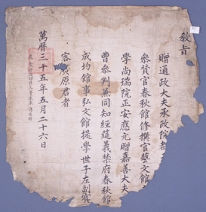 敎旨
贈通政大夫承政院都
參贊官春秋館修撰官藝文館
學尙瑞院正安應元贈嘉善大夫
曹參判兼同知經筵義禁府春秋館
成均館事弘文館提學世子左副賓
客廣原君者
萬曆三十五年五月二十六日